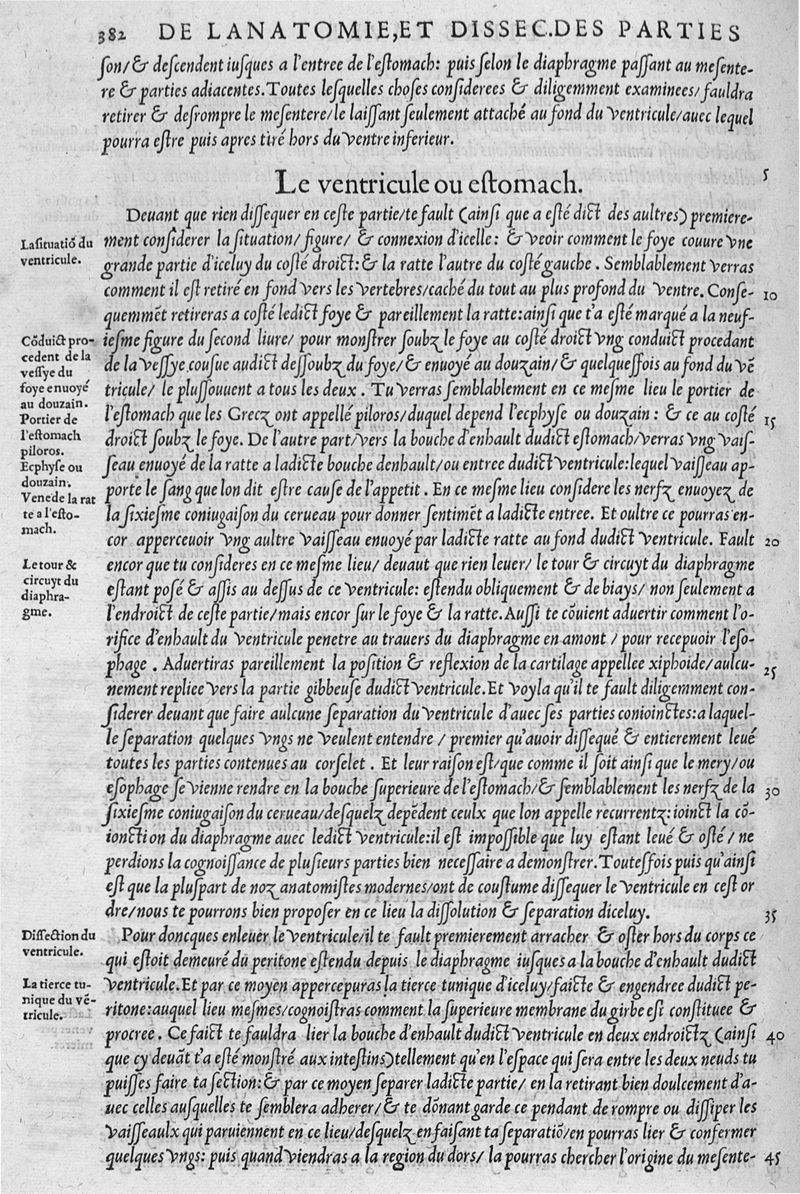 382 DE LANATOMIE,ET DISSEC.DES PARTIES
son/& descendent iusques a l'entree de l'estomach: puis selon le diaphragme passant au mesente-
re & parties adiacentes. Toutes lesquelles choses considerees & diligemment examinees/fauldra
retirer & desrompre le mesentere/le laissant seulement attaché au fond du ventricule/auec lequel
pourra estre puis apres tiré hors du ventre inferieur.
Le ventricule ou estomach.
5
Deuant que rien dissequer en ceste partie/te fault (ainsi que a esté dict des aultres) premiere-
La situatiō du
ventricule.
ment considerer la situation/figure/ & connexion d'icelle: & veoir comment le foye couure vne
grande partie d'iceluy du costé droict: & la ratte l'autre du costé gauche. Semblablement verras
comment il est retiré en fond vers les vertebres/caché du tout au plus profond du ventre. Conse-
10
quemmēt retireras a costé ledict foye & pareillement la ratte:ainsi que t'a esté marqué a la neuf-
Cōduict pro-
cedent de la
vessye du
foye enuoyé
au douzain.
iesme figure du second liure/ pour monstrer soubz le foye au costé droict vng conduict procedant
de la vessye cousue audict dessoubz du foye/& enuoyé au douzain/& quelquesfois au fond du vē
tricule/ le plussouuent a tous les deux. Tu verras semblablement en ce mesme lieu le portier de
Portier de
l'estomach
piloros.
l'estomach que les Grecz ont appellé piloros/duquel depend l'ecphyse ou douzain: & ce au costé
15
droict soubz le foye. De l'autre part/vers la bouche d'enhault dudict estomach/verras vng vais-
Ecphyse ou
douzain.
seau enuoyé de la ratte a ladicte bouche denhault/ou entree dudict ventricule:lequel vaisseau ap-
Vene de la rat
te a l'esto-
mach.
porte le sang que lon dit estre cause de l'appetit. En ce mesme lieu considere les nerfz enuoyez de
la sixiesme coniugaison du cerueau pour donner sentimēt a ladicte entree. Et oultre ce pourras en-
cor apperceuoir vng aultre vaisseau enuoyé par ladicte ratte au fond dudict ventricule. Fault
20
Le tour &
circuyt du
diaphra-
gme.
encor que tu consideres en ce mesme lieu/ deuaut que rien leuer/ le tour & circuyt du diaphragme
estant posé & assis au dessus de ce ventricule: estendu obliquement & de biays/ non seulement a
l'endroict de ceste partie/mais encor sur le foye & la ratte. Aussi te cōuient aduertir comment l'o-
rifice d'enhault du ventricule penetre au trauers du diaphragme en amont / pour recepuoir l'eso-
phage. Aduertiras pareillement la position & reflexion de la cartilage appellee xiphoide/aulcu-
25
nement repliee vers la partie gibbeuse dudict ventricule. Et voyla qu'il te fault diligemment con-
siderer deuant que faire aulcune separation du ventricule d'auec ses parties conioinctes:a laquel-
le separation quelques vngs ne veulent entendre / premier qu'auoir dissequé & entierement leué
toutes les parties contenues au corselet. Et leur raison est/que comme il soit ainsi que le mery/ou
esophage se vienne rendre en la bouche superieure de l'estomach/& semblablement les nerfz de la
30
sixiesme coniugaison du cerueau/desquelz depēdent ceulx que lon appelle recurrentz:ioinct la cō-
ionction du diaphragme auec ledict ventricule:il est impossible que luy estant leué & osté / ne
perdions la cognoissance de plusieurs parties bien necessaire a demonstrer. Toutesfois puis qu'ainsi
est que la pluspart de noz anatomistes modernes/ont de coustume dissequer le ventricule en cest or
dre/nous te pourrons bien proposer en ce lieu la dissolution & separation diceluy.
35
Dissection du
ventricule.
Pour doncques enleuer le ventricule/il te fault premierement arracher & oster hors du corps ce
qui estoit demeuré du peritone estendu depuis le diaphragme iusques a la bouche d'enhault dudict
La tierce tu-
nique du vē-
tricule.
ventricule. Et par ce moyen appercepuras la tierce tunique d'iceluy/faicte & engendree dudict pe-
ritone:auquel lieu mesmes/cognoistras comment la superieure membrane du girbe est constituee &
procree. Ce faict te fauldra lier la bouche d'enhault dudict ventricule en deux endroictz (ainsi
40
que cy deuāt t'a esté monstré aux intestins)tellement qu'en l'espace qui sera entre les deux neuds tu
puisses faire ta section:& par ce moyen separer ladicte partie/ en la retirant bien doulcement d'a-
uec celles ausquelles te semblera adherer/& te dōnant garde ce pendant de rompre ou dissiper les
vaisseaulx qui paruiennent en ce lieu/desquelz en faisant ta separatiō/en pourras lier & confermer
quelques vngs: puis quand viendras a la region du dors/ la pourras chercher l'origine du mesente-
45